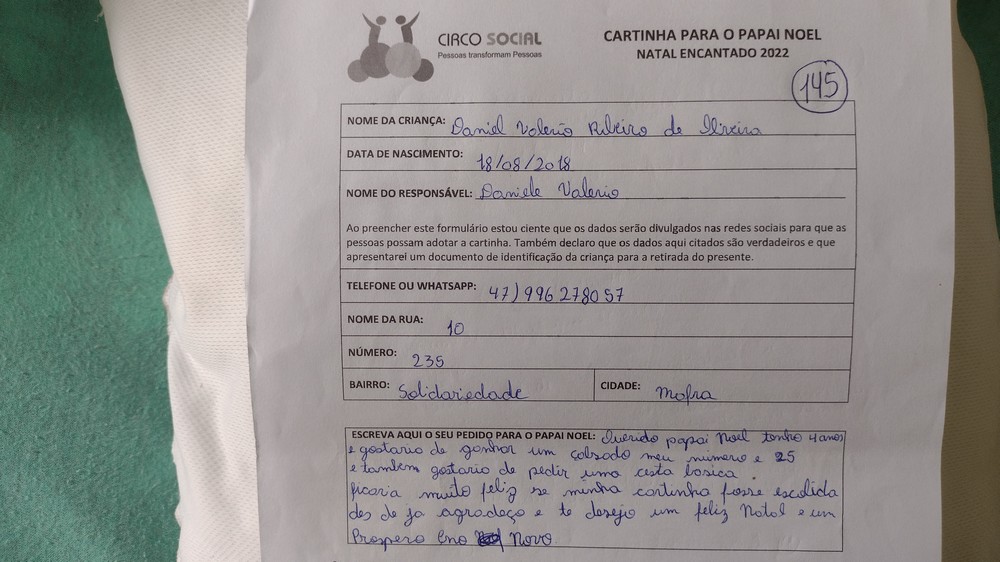 CIRCO SOCIAL
Pessoas transformam Pessoas
CARTINHA PARA O PAPAI NOEL
NATAL ENCANTADO 2022
145
NOME DA CRIANÇA: Daniel Valerio Ribeiro de Oliveira
DATA DE NASCIMENTO: 18/08/2018
NOME DO RESPONSÁVEL: Daniele Valerio
Ao preencher este formulário estou ciente que os dados serão divulgados nas redes sociais para que as
pessoas possam adotar a cartinha. Também declaro que os dados aqui citados são verdadeiros e que
apresentarei um documento de identificação da criança para a retirada do presente.
TELEFONE OU WHATSAPP: 47) 996 278057
NOME DA RUA: 10
NÚMERO: 235
BAIRRO: Solidariedade CIDADE: Mafra
ESCREVA AQUI O SEU PEDIDO PARA O PAPAI NOEL: Querido papai Noel tenho 4 anos
e gostaria de ganhar um calsado meu número e 25
e também gostaria de pedir uma cesta basica.
ficaria muito feliz se minha cartinha fosse escolida
des de ja agradeço e te desejo um feliz Natal e um
Prospero Ano Novo